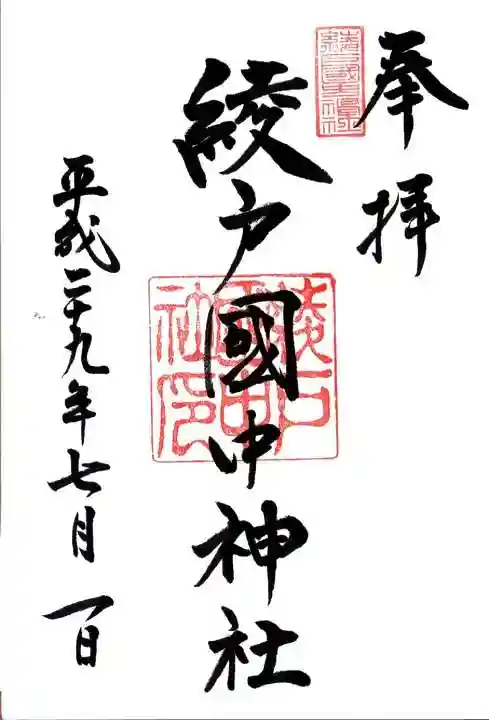 奉拝
綾戸國中神社
平成二十九年七月一日